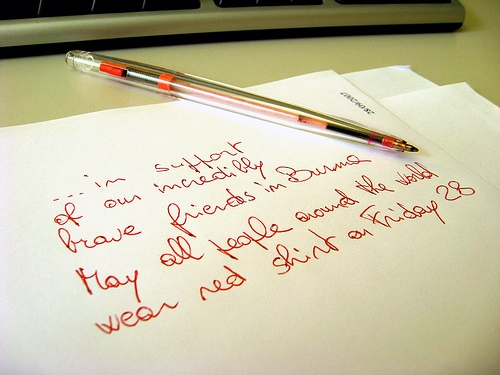 28/09/2007
... in support
of our incredibly
brave friends in Burma
May all people around the world
wear red shirt on Friday 28